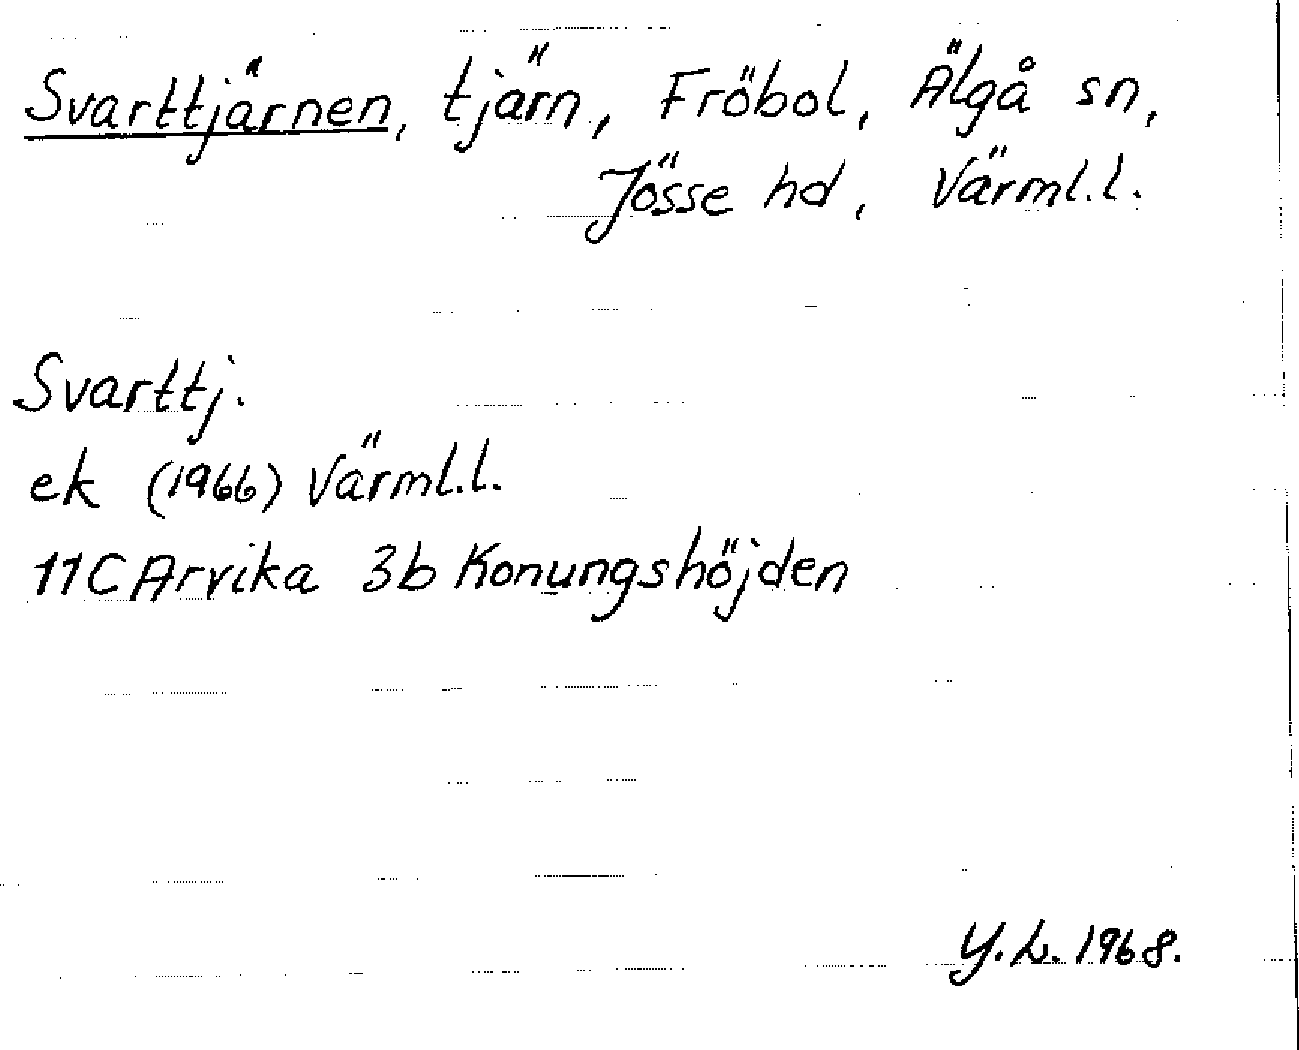 Svarttjärnen, tjärn, Fröbol, Älgå sn,
Jösse hd, Värml.l.
Svarttj.
ek (1966) Värml.l.
11C Arvika 3b Konungshöjden
Y.L. 1968.